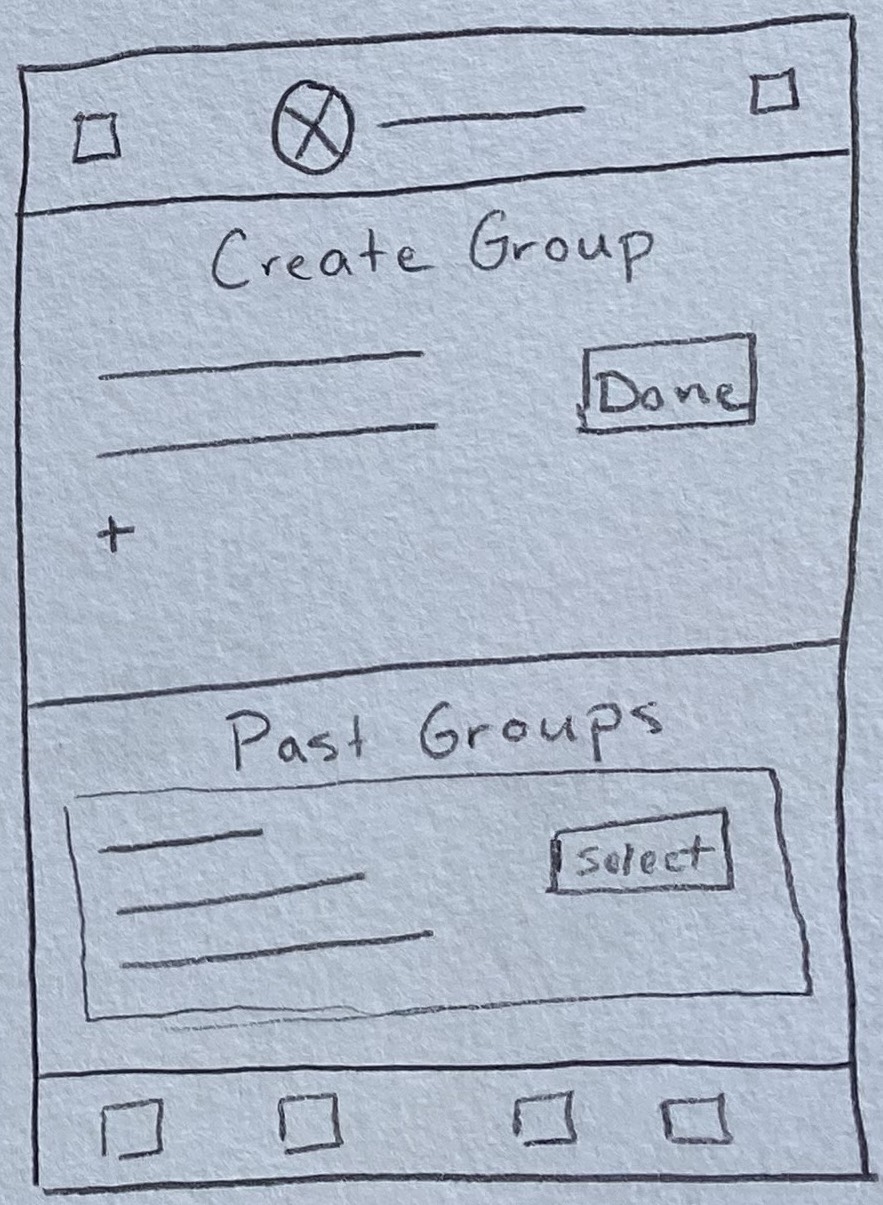 Create Group
Done
+
Past Groups
Select